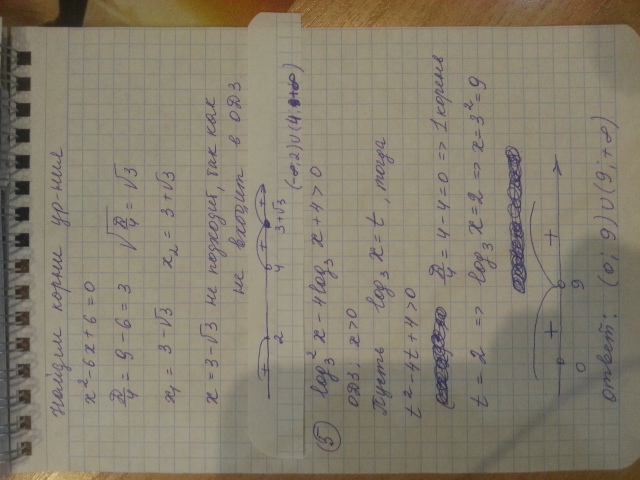 Найдем корни ур-ния
x² - 6x + 6 = 0
D/4 = 9 - 6 = 3   √(D/4) = √3
x₁ = 3 - √3   x₂ = 3 + √3
x = 3 - √3 не подходит, так как
не входит в ОДЗ
+ - + - +
2 4 3+√3 (-∞; 2) ∪ (4; +∞)
⑤ log₃² x - 4 log₃ x + 4 > 0
ОДЗ: x > 0
Пусть log₃ x = t, тогда
t² - 4t + 4 > 0
D/4 = 4 - 4 = 0 => 1 корень
t = 2 => log₃ x = 2 => x = 3² = 9
+ +
0 9
ответ: (0; 9) ∪ (9; +∞)